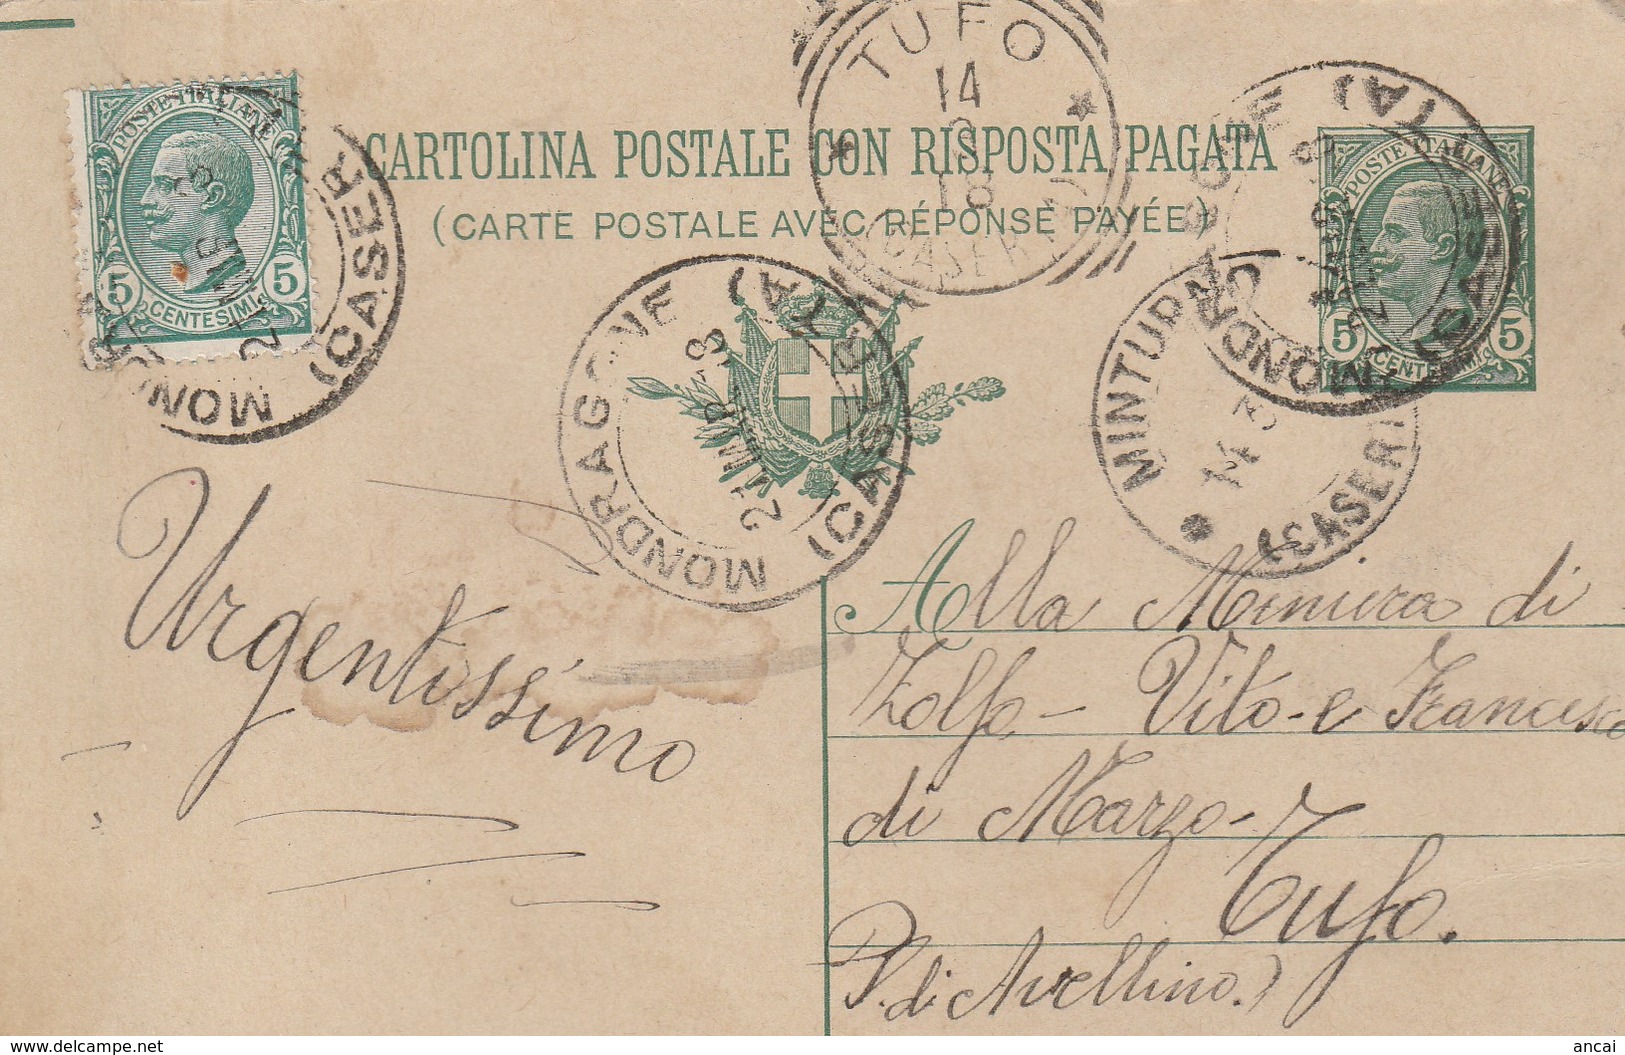 POSTE ITALIANE
5 5
CENTESIMI
CARTOLINA POSTALE CON RISPOSTA PAGATA
(CARTE POSTALE AVEC RÉPONSE PAYÉE)
TUFO
14
18
(CASERTA)
POSTE ITALIANE
5 5
CENTESIMI
MONDRAGONE
(CASERTA)
MONDRAGONE
(CASERTA)
MONDRAGONE
(CASERTA)
MINTURNO
(CASERTA)
Urgentissimo
Alla Miniera di
Zolfo - Vito e Francesco
di Marzo -
Tufo.
P. di Avellino.)
delcampe.net
ancai